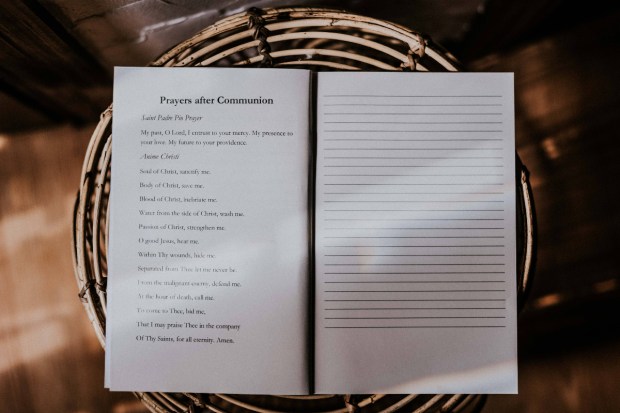 Prayers after Communion
Saint Padre Pio Prayer
My past, O Lord, I entrust to your mercy. My presence to
your love. My future to your providence.
Anima Christi
Soul of Christ, sanctify me.
Body of Christ, save me.
Blood of Christ, inebriate me.
Water from the side of Christ, wash me.
Passion of Christ, strengthen me.
O good Jesus, hear me.
Within Thy wounds, hide me.
Separated from Thee let me never be.
From the malignant enemy, defend me.
At the hour of death, call me.
To come to Thee, bid me.
That I may praise Thee in the company
Of Thy Saints, for all eternity. Amen.